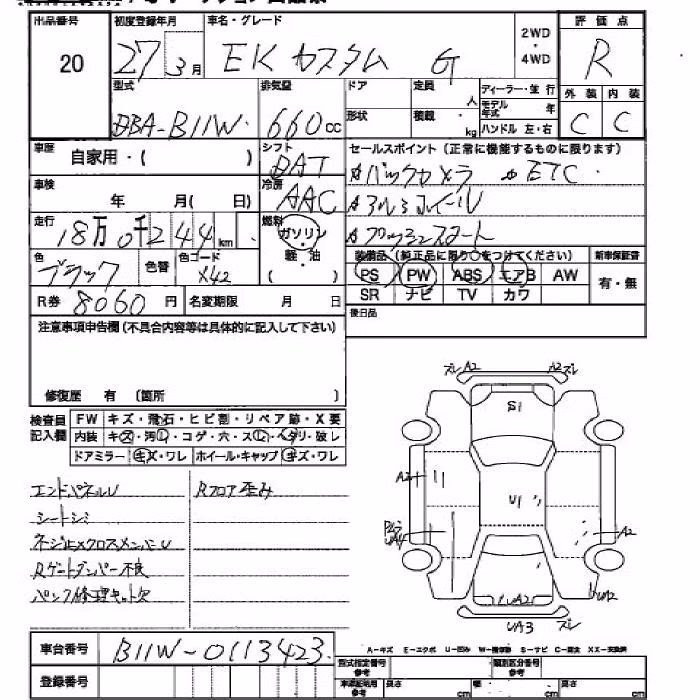 出品番号 初度登録年月 車名・グレード 2WD・4WD 評価点
20 27 3月 EK カスタム G R
型式 排気量 ドア 定員 人 ディーラー・並行 外装 内装
DBA-B11W 660cc 形状 積載 kg モデル年式 年 ハンドル 左・右 C C
車歴 自家用・( ) シフト DAT セールスポイント(正常に機能するものに限ります)
☆バックカメラ ☆ETC
車検 年 月( 日) 冷房 AAC ☆アルミホイール
走行 18万0千244km 燃料 ガソリン 軽・油 ( ) ☆プッシュスタート
色 ブラック 色替 色コード X42 装備品(純正品に限り○をつけてください) 新車保証書
PS PW ABS エアB AW 有・無
R券 8060円 名変期限 月 日 SR ナビ TV カワ
注意事項申告欄(不具合内容等は具体的に記入して下さい) 後日品
修復歴 有 〔箇所 〕
検査員記入欄 FW キズ・飛石・ヒビ割・リペア跡・X要
内装 キズ・汚レ・コゲ・穴・スレ・ヘタリ・破レ
ドアミラー キズ・ワレ ホイール・キャップ キズ・ワレ
エンドパネルU Rフロア歪み
シートシミ
ネジ止メクロスメンバーU
Rゲートダンパー不良
パンク修理キット欠
ズレ A2 A2 ズレ
S1
A2
U1
UA4 A2
UA2 UA2
UA3 ズレ
車台番号 B11W-0113423
A-キズ E-エクボ U-凹み W-補修跡 S-サビ C-腐食 XX-交換済
型式指定番号 参考 類別区分番号 参考
登録番号 車庫証明用 参考 長さ cm 幅 cm 高さ cm